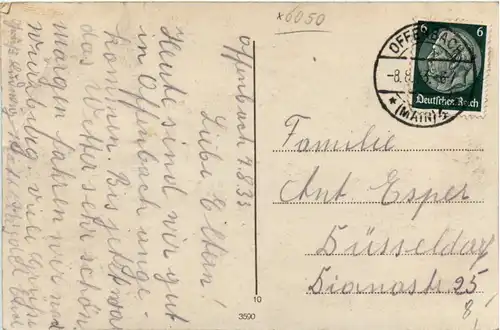 x6050
Offenbach 7.8.33
Liebe Eltern!
Heute sind wir gut
in Offenbach ange-
kommen. Bis jetzt war
das Wetter sehr schön
morgen fahren wir nach
Würzburg viele Grüße
6 6
Deutsches Reich
OFFENBACH
-8.8.
* (MAIN) 4
Familie
Ant. Esper
Düsseldorf
Dianastr. 25
10
3590